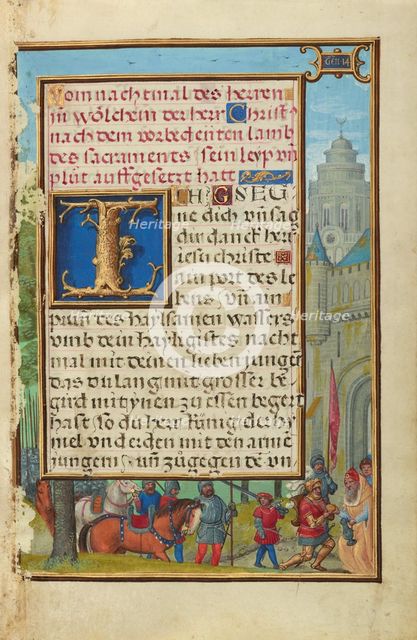 GEN·14
Vom nachtmal des herren
in wölchem der herr Christ
nach dem vorbedeuten lamb
des sacraments / sein leyp vñ
plůt auffgesetzt hatt
ICH GSEG
ne dich vñ sag
dir danck herr
iesu christe
ain port des le
bens / vñ ain
prun des haylsamen wassers
vmb dein hayligistes nacht
mal mit deinen lieben jungern
das du lang mit grosser be
gird mit jnen zu essen begert
hast so du herr künig der hy
miel vnd erden mit den armē
jungern / vñ zůgegen de vn
Heritage
Heritage
Heritage
Heritage